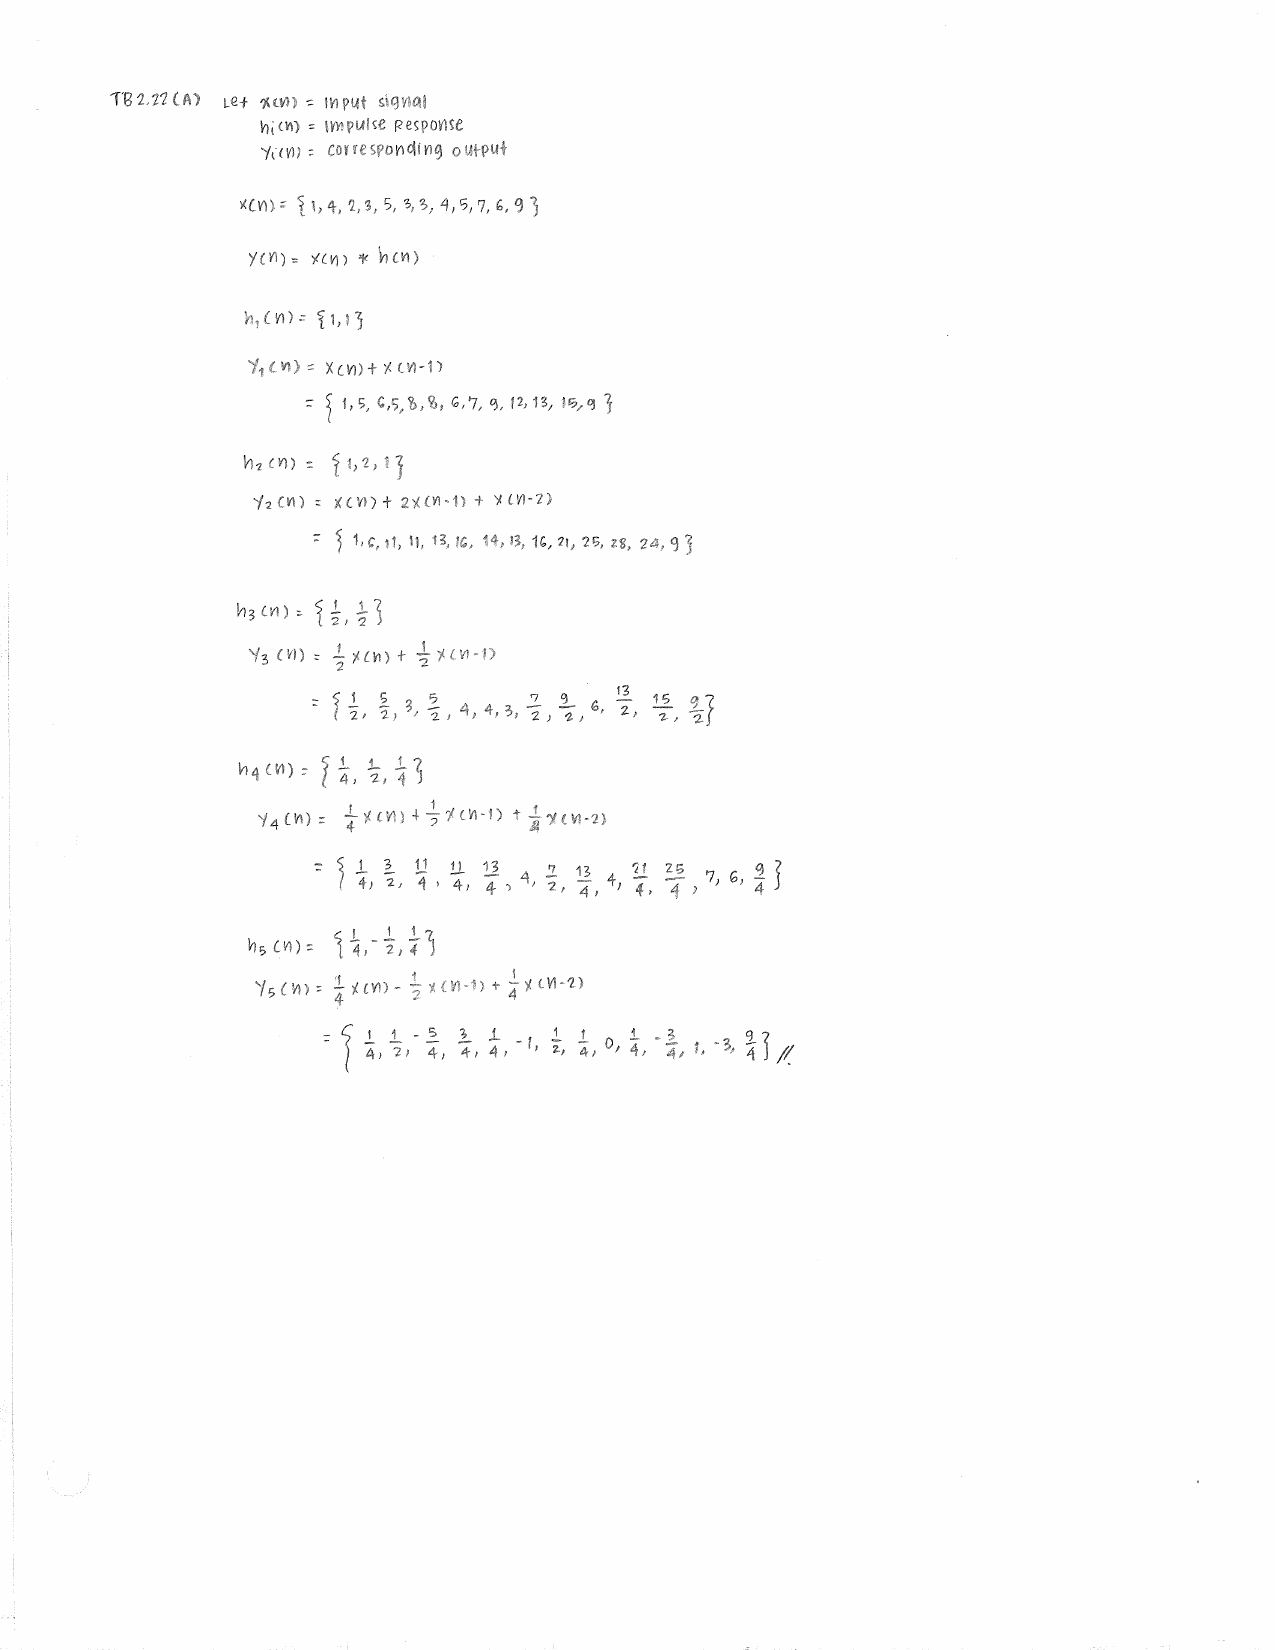 TB 2.22 (A) Let x(n) = input signal
hi(n) = impulse Response
yi(n) = corresponding output
x(n) = {1, 4, 2, 3, 5, 3, 3, 4, 5, 7, 6, 9}
y(n) = x(n) * h(n)
h₁(n) = {1, 1}
y₁(n) = x(n) + x(n-1)
= {1, 5, 6, 5, 8, 8, 6, 7, 9, 12, 13, 15, 9}
h₂(n) = {1, 2, 1}
y₂(n) = x(n) + 2x(n-1) + x(n-2)
= {1, 6, 11, 11, 13, 16, 14, 13, 16, 21, 25, 28, 24, 9}
h₃(n) = {1/2, 1/2}
y₃(n) = 1/2 x(n) + 1/2 x(n-1)
= {1/2, 5/2, 3, 5/2, 4, 4, 3, 7/2, 9/2, 6, 13/2, 15/2, 9/2}
h₄(n) = {1/4, 1/2, 1/4}
y₄(n) = 1/4 x(n) + 1/2 x(n-1) + 1/4 x(n-2)
= {1/4, 3/2, 11/4, 11/4, 13/4, 4, 7/2, 13/4, 4, 21/4, 25/4, 7, 6, 9/4}
h₅(n) = {1/4, -1/2, 1/4}
y₅(n) = 1/4 x(n) - 1/2 x(n-1) + 1/4 x(n-2)
= {1/4, 1/2, -5/4, 3/4, 1/4, -1, 1/2, 1/4, 0, 1/4, -3/4, 1, -3, 9/4} //